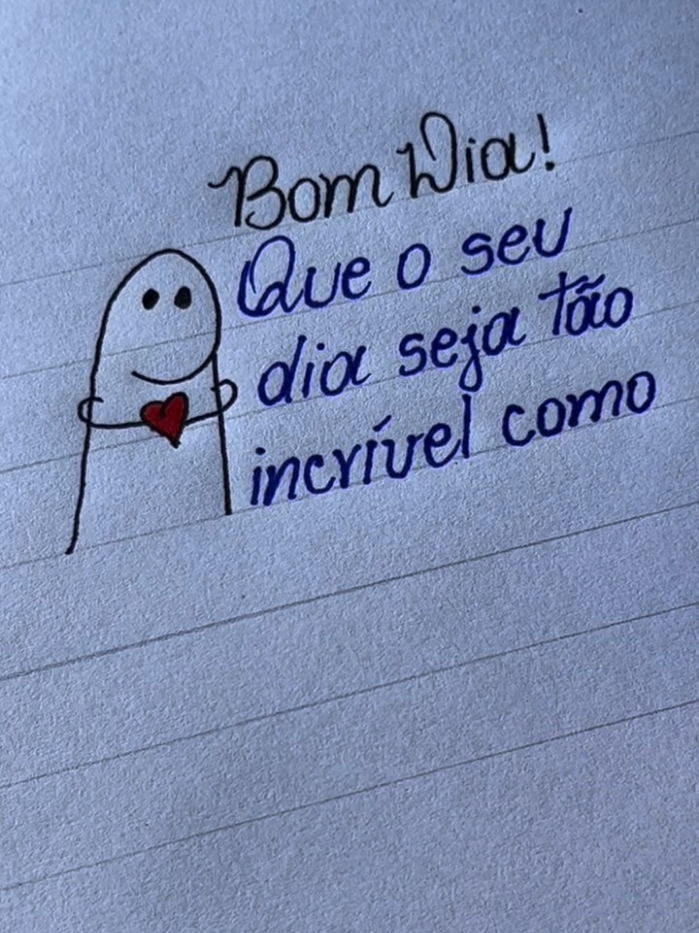 Bom Dia!
Que o seu
dia seja tão
incrível como